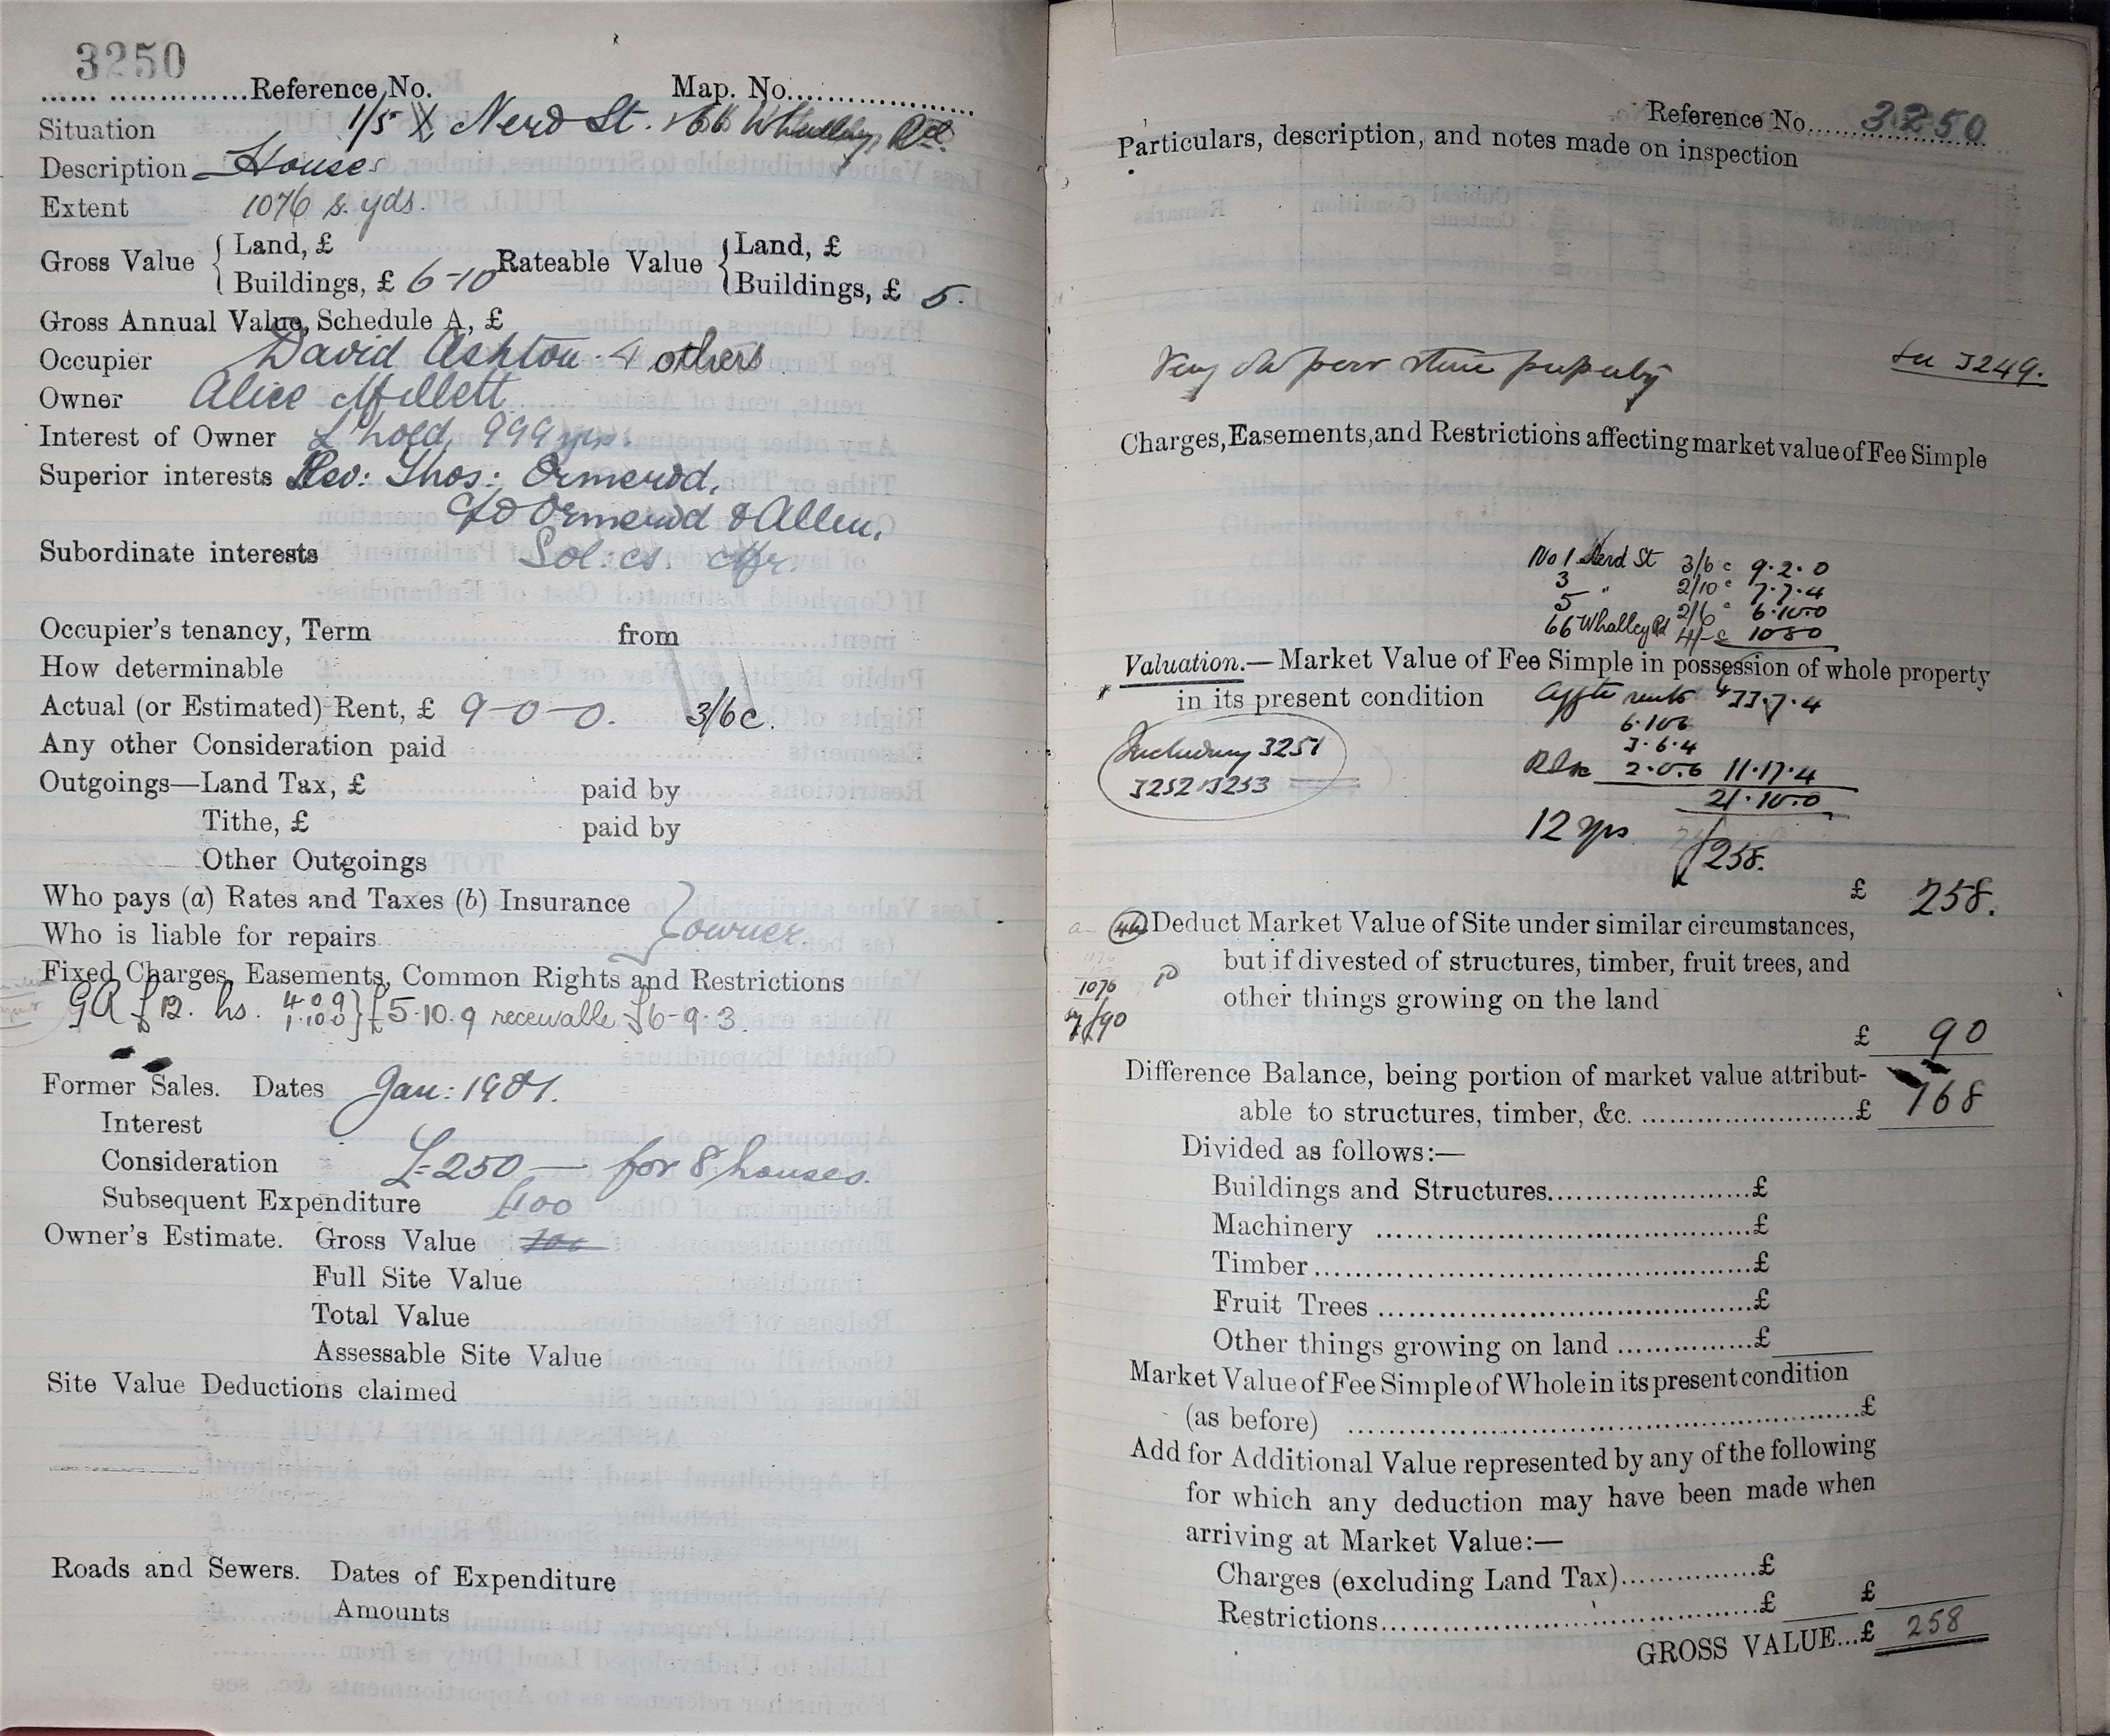 3250
Reference No. Map. No.
Situation 1/5 Nerd St. & 66 Whalley Rd.
Description Houses
Extent 1076 s. yds.
Gross Value { Land, £ Rateable Value { Land, £
Buildings, £ 6-10 Buildings, £ 5.
Gross Annual Value, Schedule A, £
Occupier David Ashton - 4 others
Owner Alice Mellett
Interest of Owner L'hold 999 yrs.
Superior interests Rev: Thos: Ormerod,
c/o Ormerod & Allen,
Subordinate interests Sol:cs. M/r.
Occupier's tenancy, Term from
How determinable
Actual (or Estimated) Rent, £ 9-0-0. 3/6c.
Any other Consideration paid
Outgoings—Land Tax, £ paid by
Tithe, £ paid by
Other Outgoings
Who pays (a) Rates and Taxes (b) Insurance
Who is liable for repairs } owner
Fixed Charges, Easements, Common Rights and Restrictions
GR £12. hs. 4 0 9
1.10 0 } £5.10.9 receivable £6-9.3.
Former Sales. Dates Jan: 1901.
Interest
Consideration £250 — for 8 houses.
Subsequent Expenditure £100
Owner's Estimate. Gross Value
Full Site Value
Total Value
Assessable Site Value
Site Value Deductions claimed
Roads and Sewers. Dates of Expenditure
Amounts
Reference No. 3250
Particulars, description, and notes made on inspection
Very old poor stone property See 3249.
Charges, Easements, and Restrictions affecting market value of Fee Simple
No 1 Nerd St 3/6 c 9.2.0
3 " 2/10 c 7.7.4
5 2/6 c 6.10.0
66 Whalley Rd 4/- c 10 8 0
Valuation.—Market Value of Fee Simple in possession of whole property
in its present condition Aggte rents 33.7.4
6.10 0
Including 3251 3.6.4
3252 3253 2.0.6 11.17.4
21.10.0
12 yrs
£258.
£ 258.
Deduct Market Value of Site under similar circumstances,
but if divested of structures, timber, fruit trees, and
1076 other things growing on the land
£90
£ 90
Difference Balance, being portion of market value attribut-
able to structures, timber, &c. £ 168
Divided as follows:—
Buildings and Structures £
Machinery £
Timber £
Fruit Trees £
Other things growing on land £
Market Value of Fee Simple of Whole in its present condition
(as before) £
Add for Additional Value represented by any of the following
for which any deduction may have been made when
arriving at Market Value:—
Charges (excluding Land Tax) £
Restrictions £ £
GROSS VALUE...£ 258